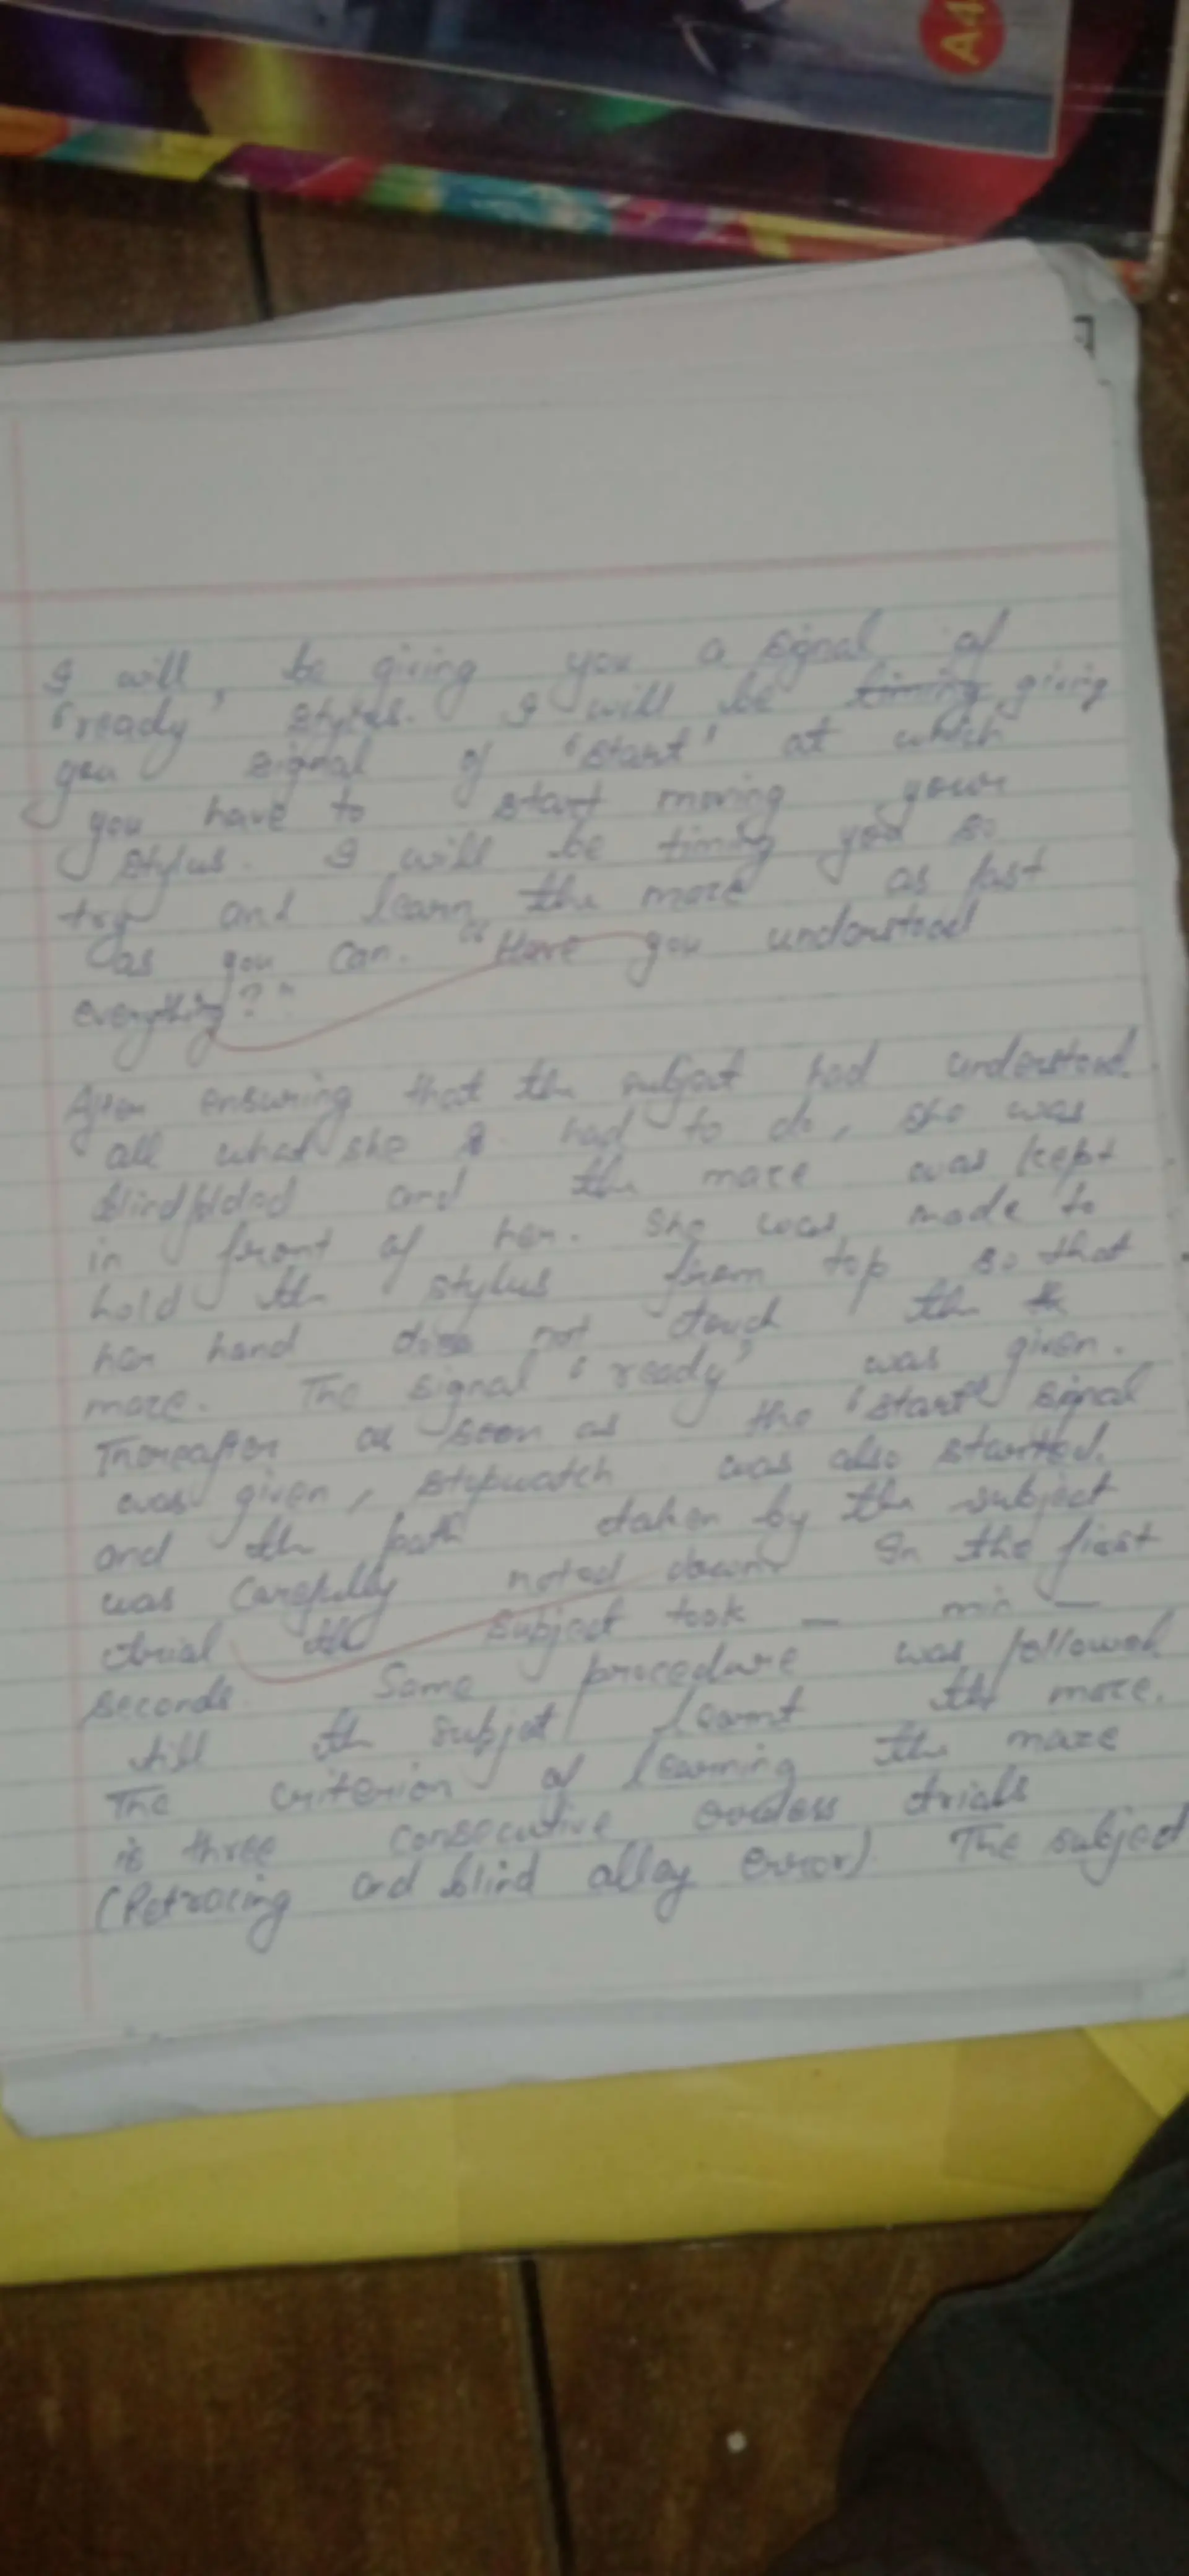 A4
I will, be giving you a signal of
"ready' stylus. I will be timing giving
you signal of 'start' at which
you have to start moving your
stylus. I will be timing you so
try and learn the maze as fast
as you can. "Have you understood
everything?"
After ensuring that the subject had understood
all what she had to do, she was
blindfolded and the maze was kept
in front of her. She was made to
hold the stylus from top so that
her hand does not touch the
maze. The signal 'ready' was given.
Thereafter as soon as the 'start' signal
was given, stopwatch was also started.
and the path taken by the subject
was carefully noted down. In the first
trial the subject took _ min _
seconds. Same procedure was followed
till the subject learnt the maze.
The criterion of learning the maze
is three consecutive errorless trials
(Retracing and blind alley error) The subject